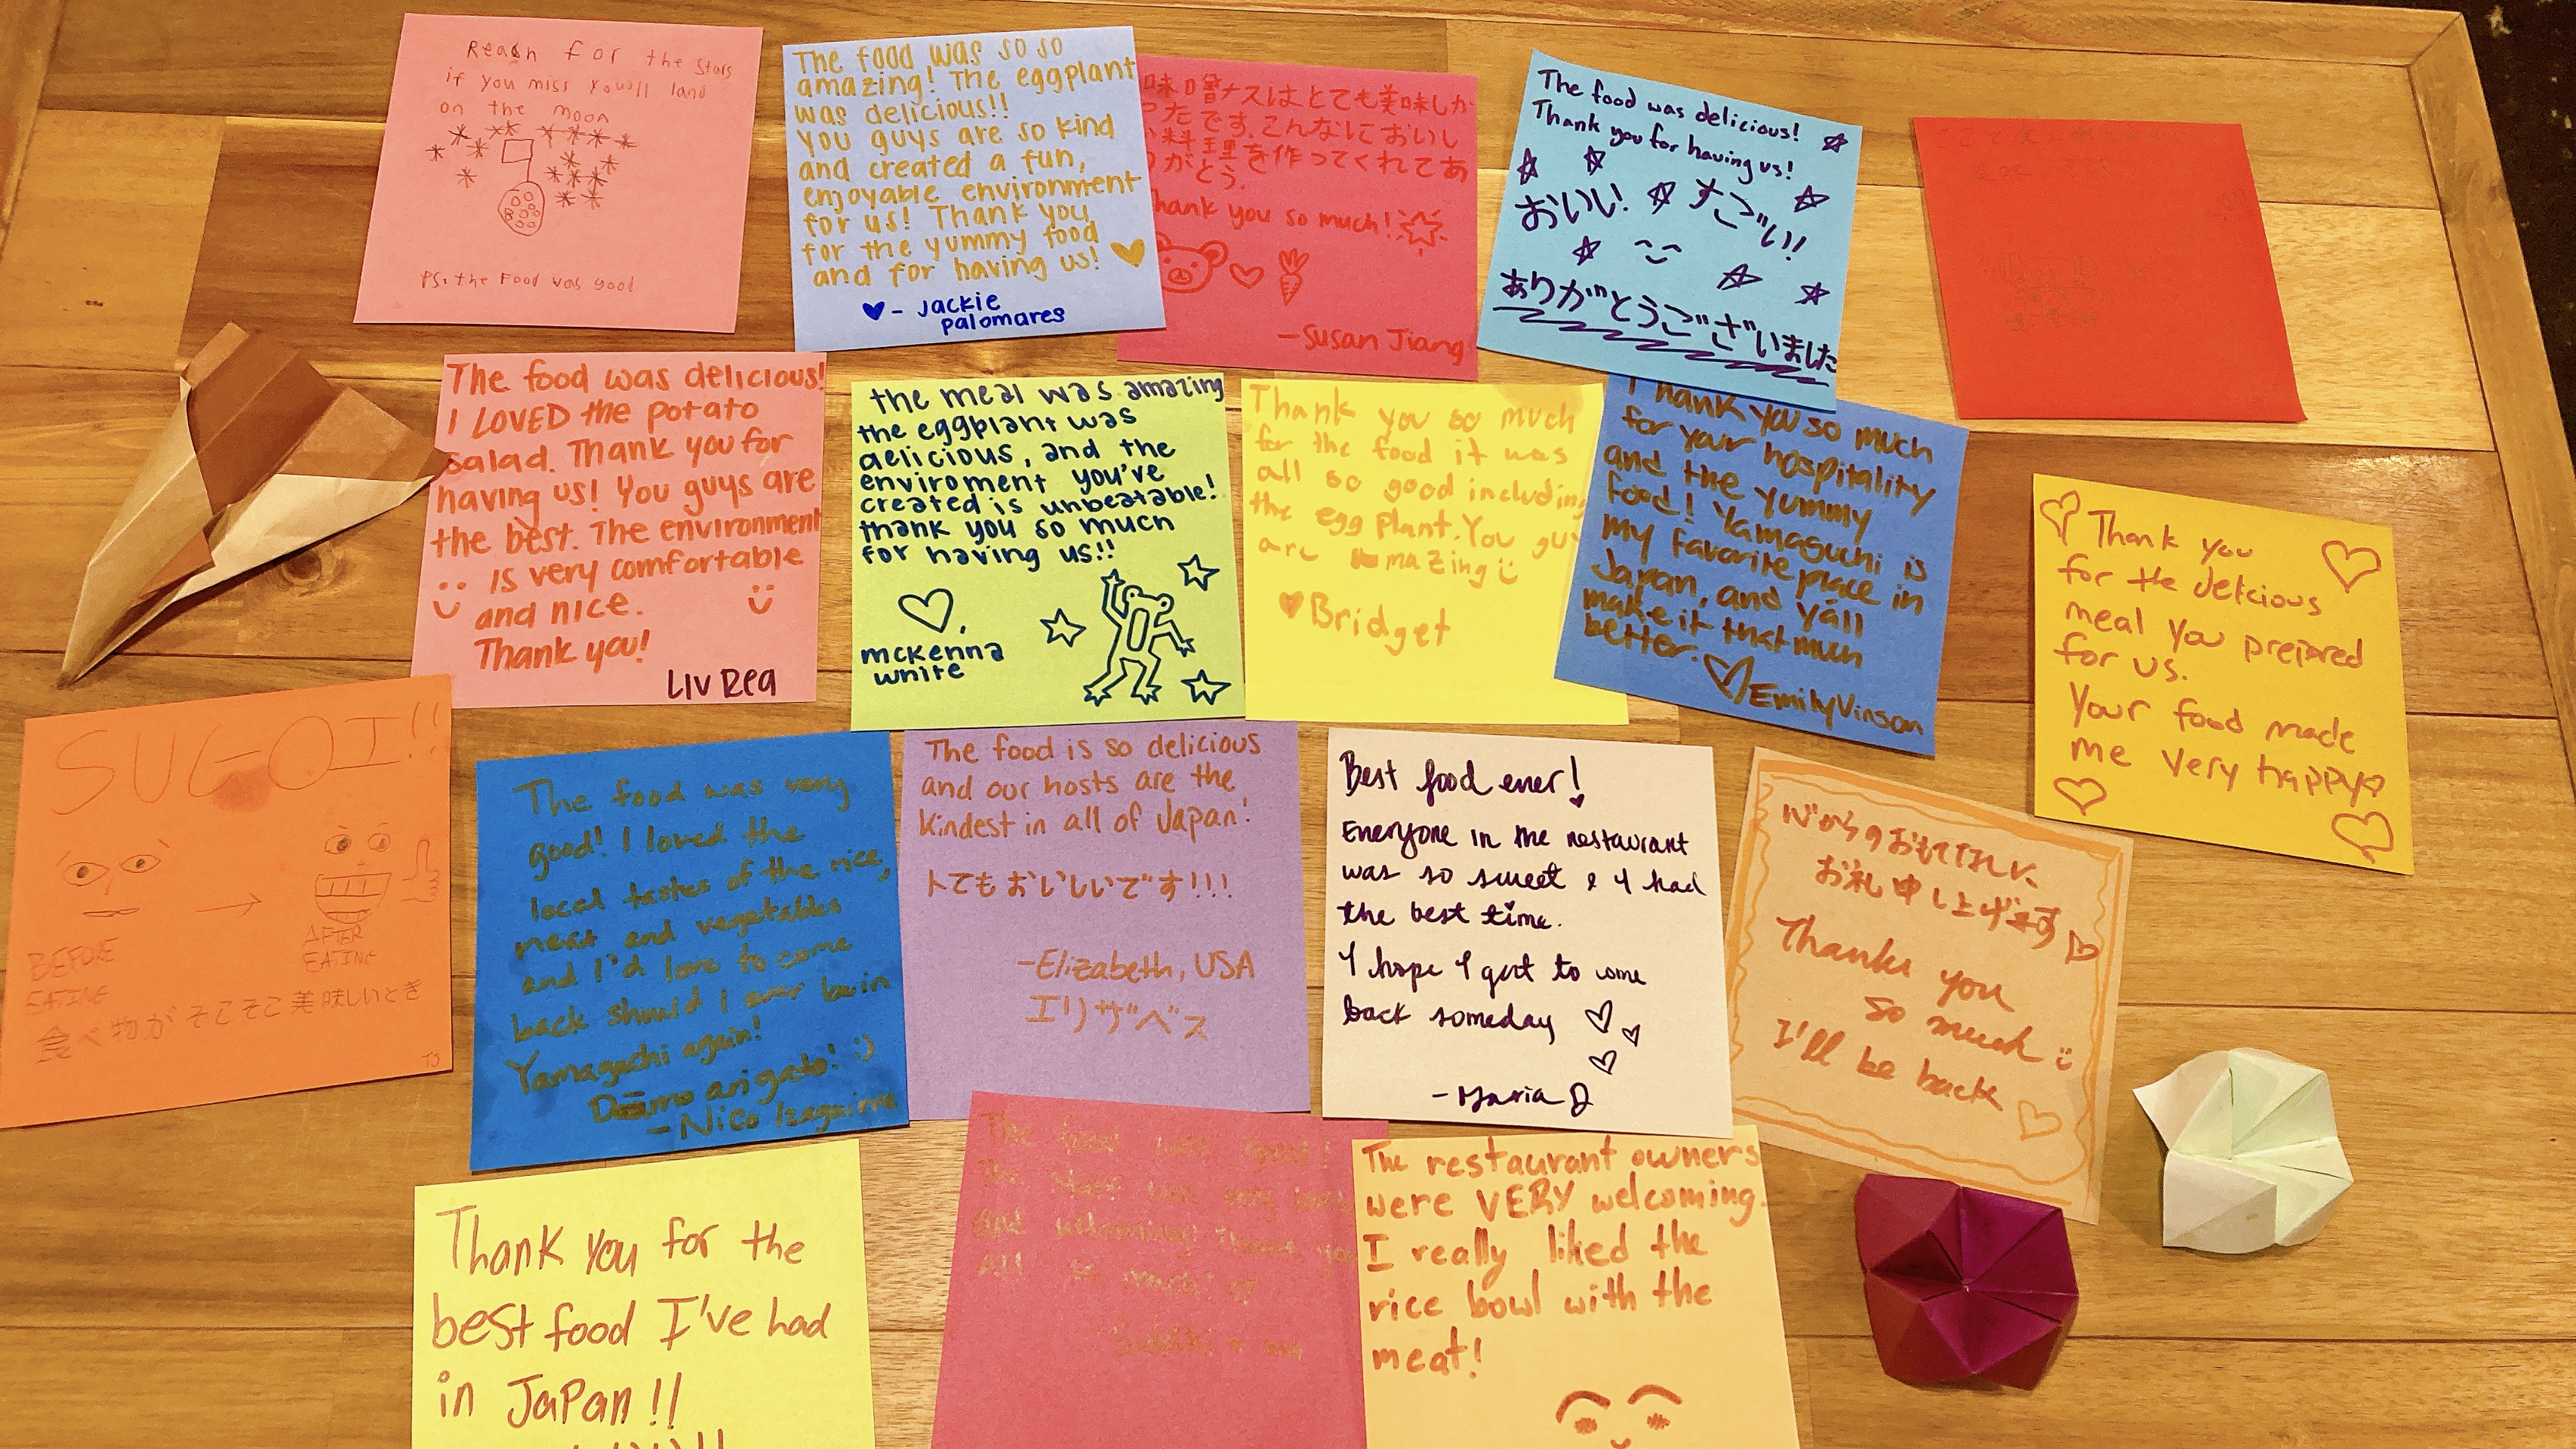 Reach for the stars
if you miss you'll land
on the moon
PS: the Food was good
The food was so so
amazing! The eggplant
was delicious!!
you guys are so kind
and created a fun,
enjoyable environment
for us! Thank you
for the yummy food
and for having us!
- Jackie
palomares
味噌ナスはとても美味しか
ったです。こんなにおいし
料理を作ってくれてあ
がとう。
hank you so much!
-Susan Jiang
The food was delicious!
Thank you for having us!
おいし! すごい!!
ありがとうございました
The food was delicious!
I LOVED the potato
salad. Thank you for
having us! You guys are
the best. The environment
is very comfortable
and nice.
Thank you!
Liv Rea
the meal was amazing
the eggplant was
delicious, and the
enviroment you've
created is unbeatable!
thank you so much
for having us!!
mckenna
white
Thank you so much
for the food it was
all so good including
the egg plant. You guy
are amazing
Bridget
Thank you so much
for your hospitality
and the yummy
food! Yamaguchi is
my favorite place in
Japan, and y'all
make it that much
better.
Emily Vinson
Thank you
for the delicious
meal you prepared
for us.
Your food made
me very happy
SUGOI!!
BEFORE
EATING
AFTER
EATING
食べ物がそこそこ美味しいとき
TJ
The food was very
good! I loved the
local tastes of the rice,
meat and vegetables
and I'd love to come
back should I ever be in
Yamaguchi again!
Dōmo arigato! :)
- Nico Izaguirre
The food is so delicious
and our hosts are the
kindest in all of Japan!
トてもおいしいです!!!
-Elizabeth, USA
エリザベス
Best food ever!
Everyone in the restaurant
was so sweet & I had
the best time.
I hope I get to come
back someday
- Maria D
心からのおもてなしに、
お礼申し上げます
Thanks you
so much
I'll be back
Thank you for the
best food I've had
in Japan!!
The food was good!
The staff was very kind
and welcoming! Thank you
all so much!
The restaurant owners
were VERY welcoming.
I really liked the
rice bowl with the
meat!